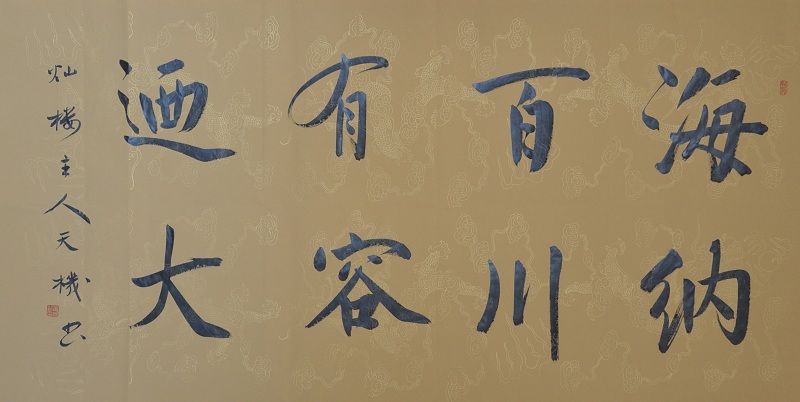 海纳
百川
有容
迺大
灿楼主人天機书